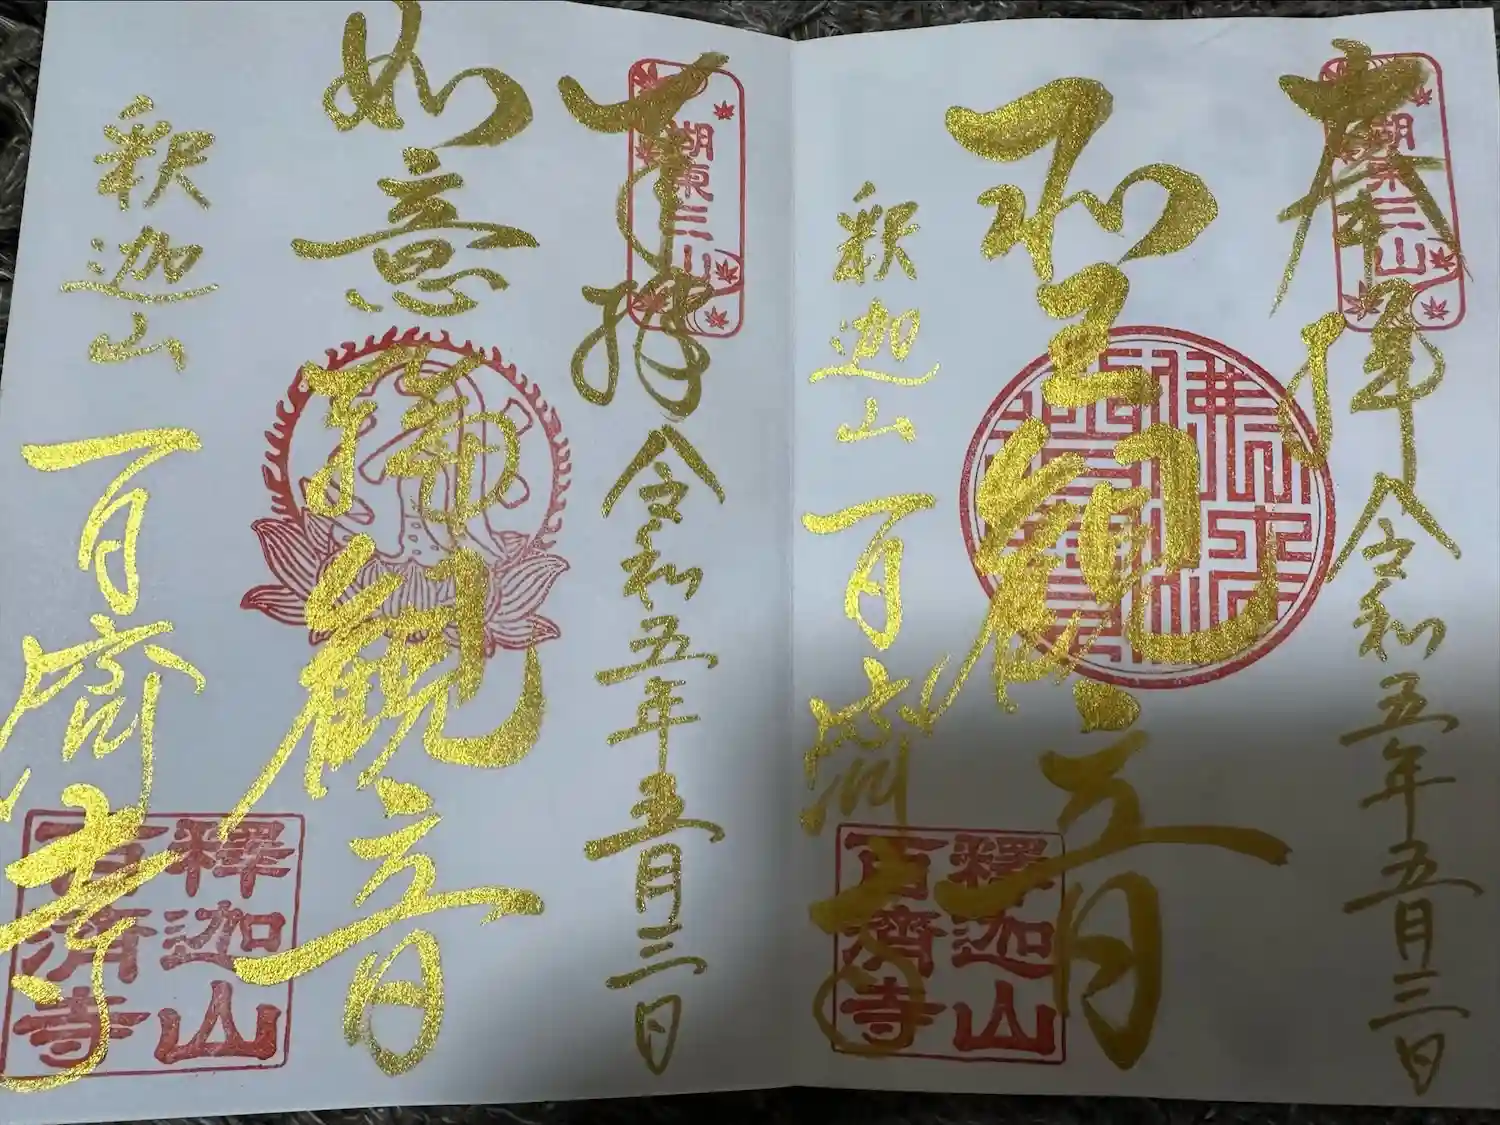 奉拝 令和五年五月三日
湖東三山
聖観音
釈迦山 百済寺
釋迦山
百濟寺
奉拝 令和五年五月三日
湖東三山
如意輪観音
釈迦山 百済寺
釋迦山
百濟寺